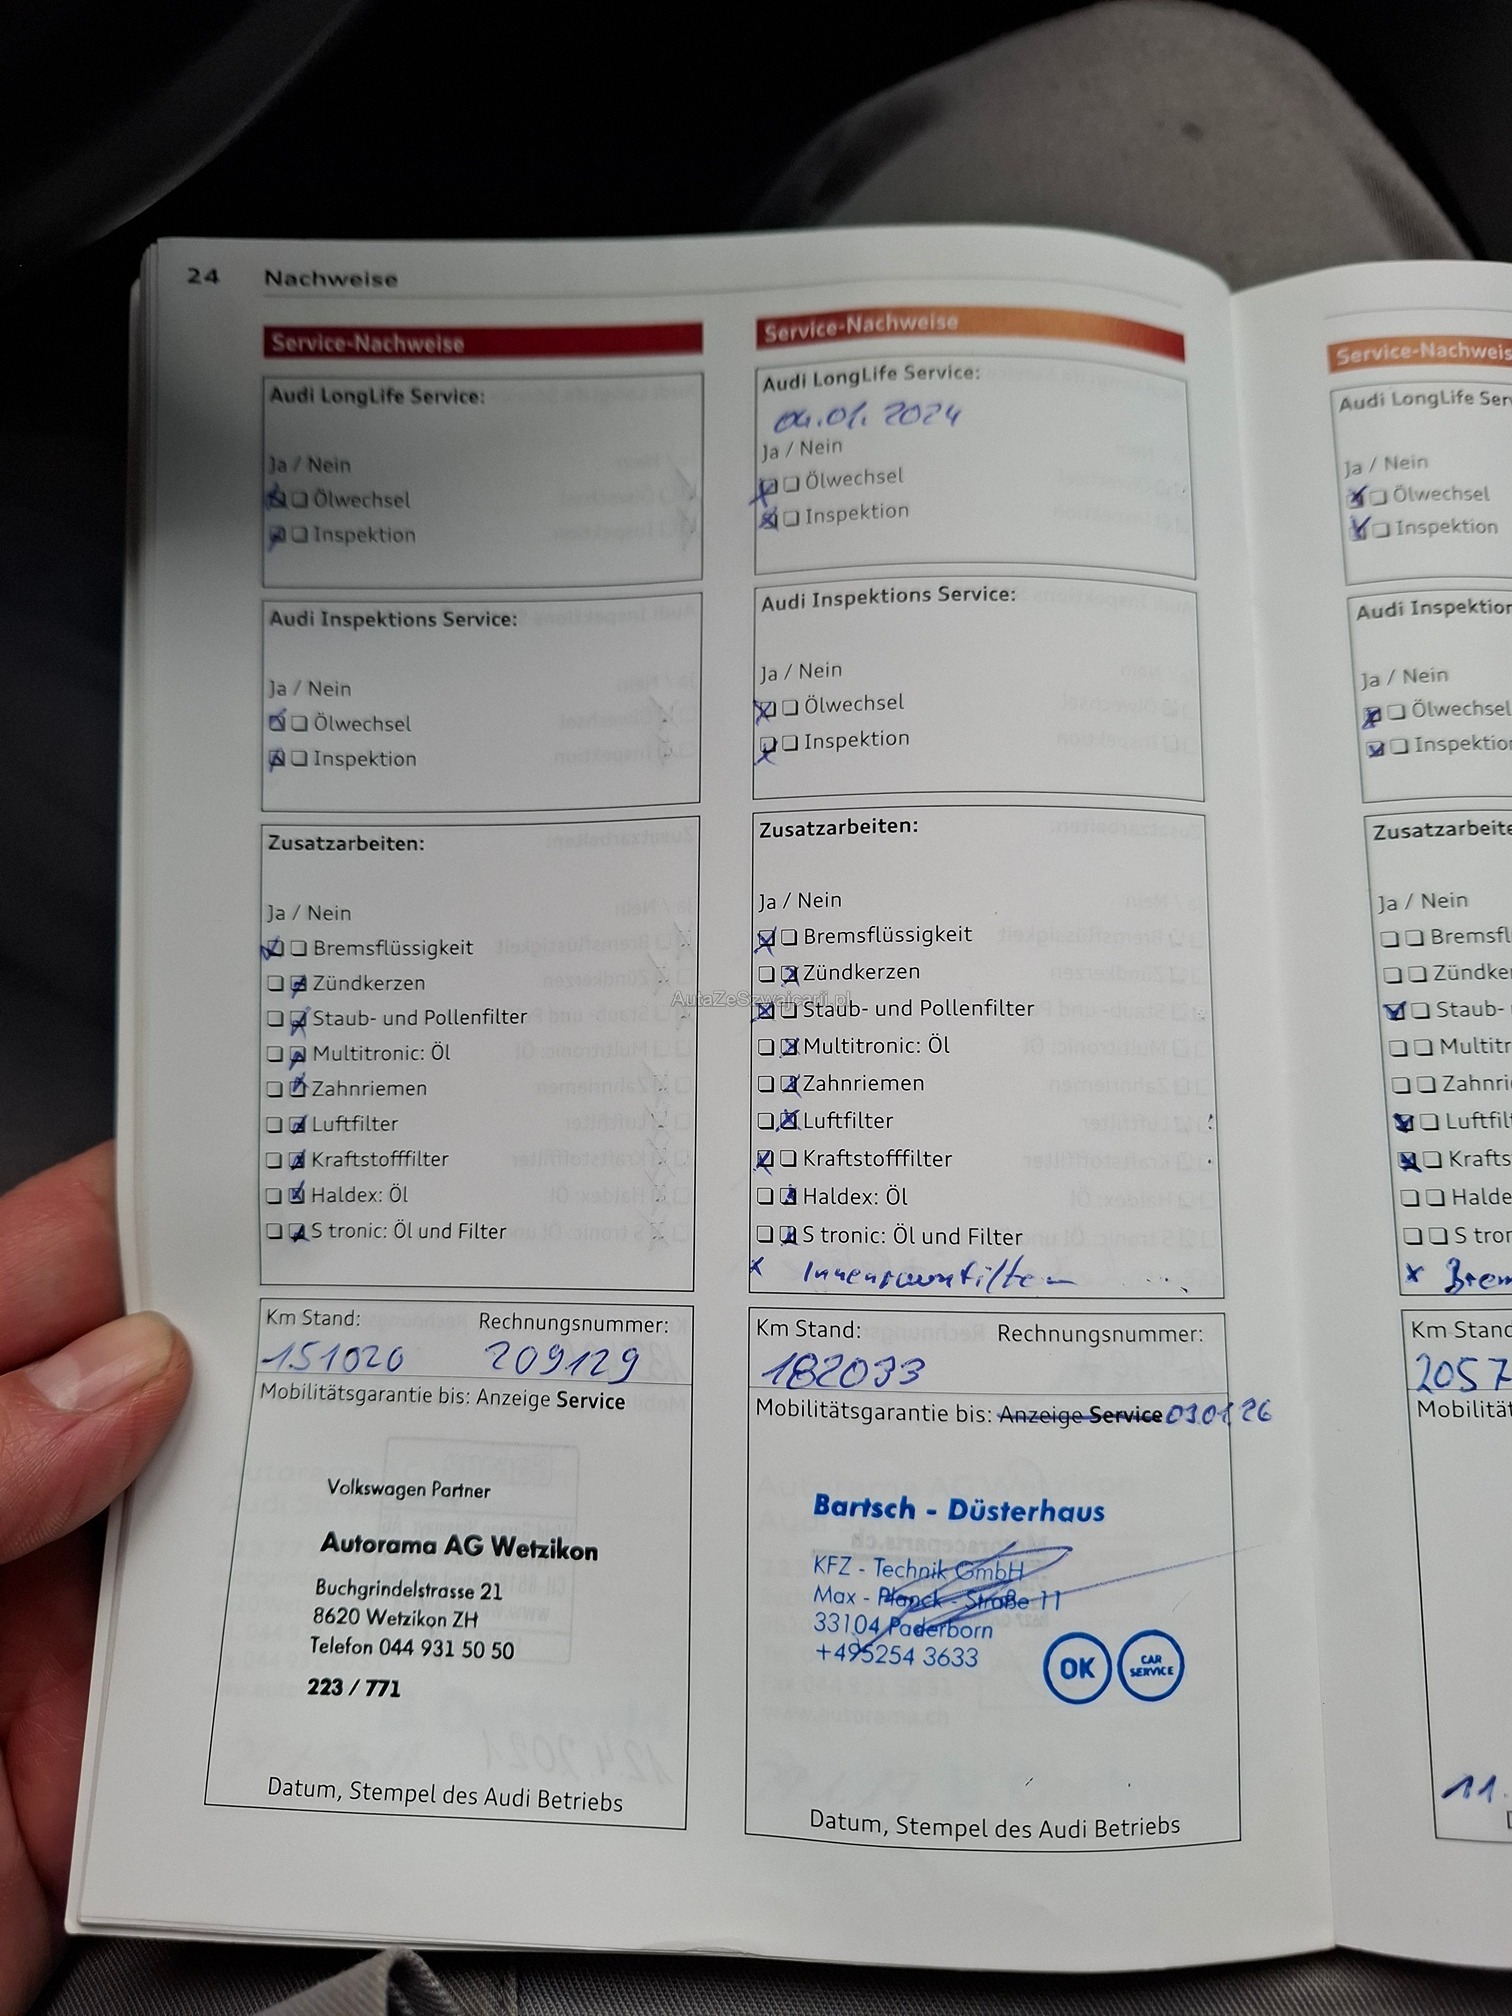 24 Nachweise
Service-Nachweise
Audi LongLife Service:
Ja / Nein
Ölwechsel
Inspektion
Audi Inspektions Service:
Ja / Nein
Ölwechsel
Inspektion
Zusatzarbeiten:
Ja / Nein
Bremsflüssigkeit
Zündkerzen
Staub- und Pollenfilter
Multitronic: Öl
Zahnriemen
Luftfilter
Kraftstofffilter
Haldex: Öl
S tronic: Öl und Filter
Km Stand: Rechnungsnummer:
151020 209129
Mobilitätsgarantie bis: Anzeige Service
Volkswagen Partner
Autorama AG Wetzikon
Buchgrindelstrasse 21
8620 Wetzikon ZH
Telefon 044 931 50 50
223 / 771
Datum, Stempel des Audi Betriebs
Service-Nachweise
Audi LongLife Service:
04.01.2024
Ja / Nein
Ölwechsel
Inspektion
Audi Inspektions Service:
Ja / Nein
Ölwechsel
Inspektion
Zusatzarbeiten:
Ja / Nein
Bremsflüssigkeit
Zündkerzen
Staub- und Pollenfilter
Multitronic: Öl
Zahnriemen
Luftfilter
Kraftstofffilter
Haldex: Öl
S tronic: Öl und Filter
x Innenraumfilter
Km Stand: Rechnungsnummer:
182033
Mobilitätsgarantie bis: Anzeige Service 03.01.26
Bartsch - Düsterhaus
KFZ - Technik GmbH
Max - Planck - Straße 11
33104 Paderborn
+495254 3633
OK CAR SERVICE
Datum, Stempel des Audi Betriebs
Service-Nachweis
Audi LongLife Ser
Ja / Nein
Ölwechsel
Inspektion
Audi Inspektion
Ja / Nein
Ölwechsel
Inspektio
Zusatzarbeite
Ja / Nein
Bremsfl
Zündke
Staub-
Multitr
Zahnri
Luftfilt
Krafts
Halde
S tror
x Brem
Km Stand
2057
Mobilität
11.
AutaZeSzwajcarii.pl